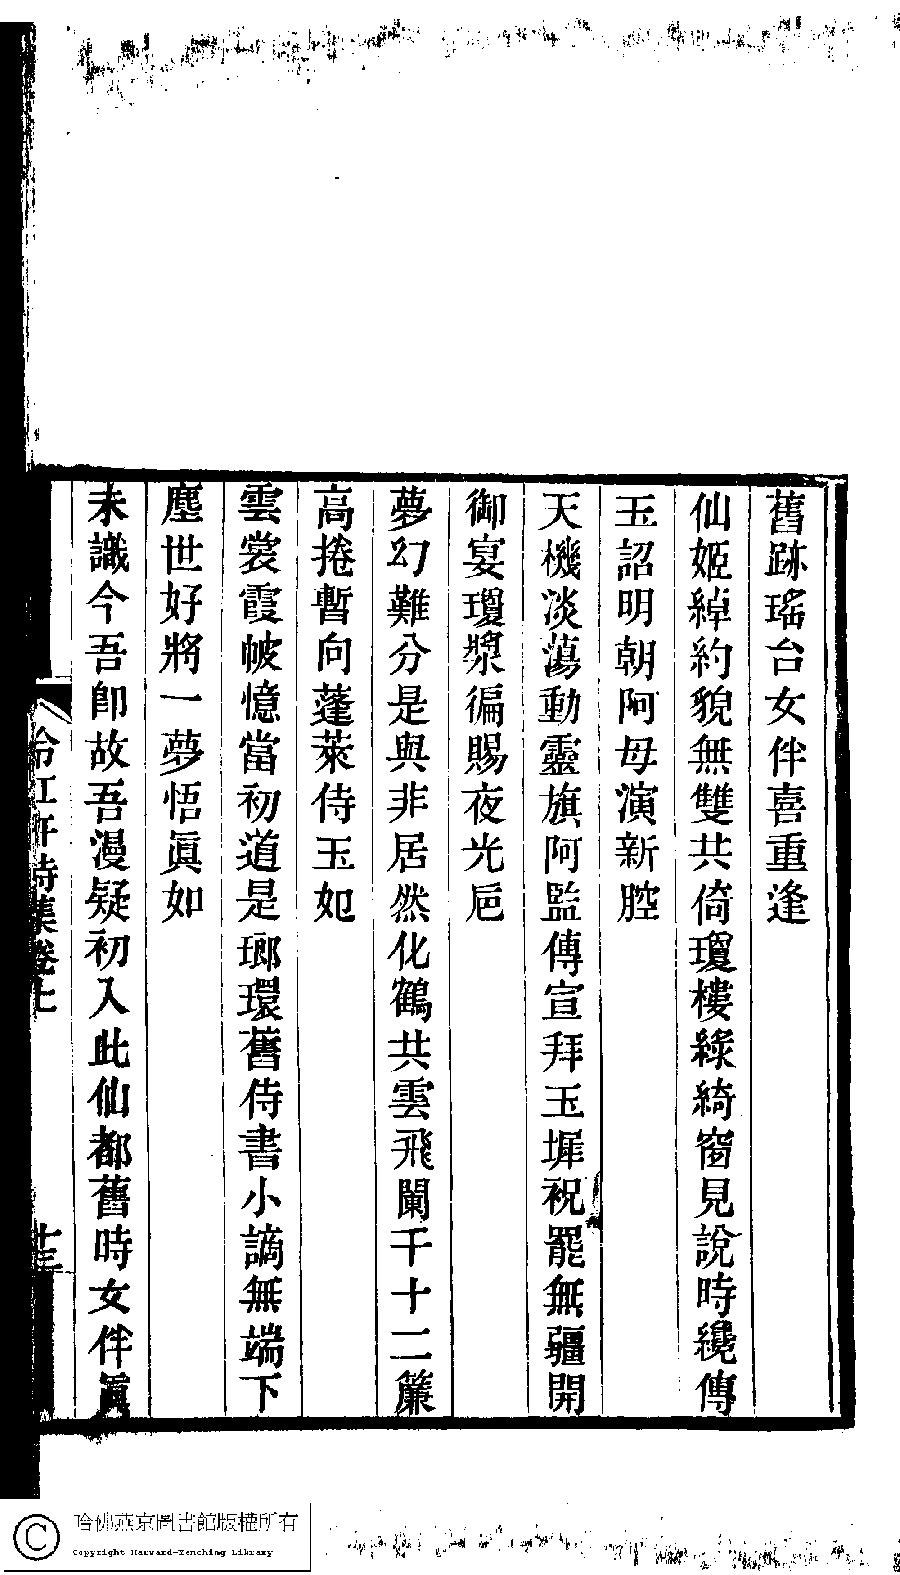 舊跡瑤台女伴喜重逢
仙姬綽約貌無雙共倚瓊樓綠綺窗見說時纔傳
玉詔明朝阿母演新腔
天機淡蕩動靈旗阿監傳宣拜玉墀祝罷無疆開
御宴瓊漿徧賜夜光巵
夢幻難分是與非居然化鶴共雲飛闌干十二簾
高捲暫向蓬萊侍玉妃
雲裳霞帔憶當初道是瑯環舊侍書小謫無端下
塵世好將一夢悟眞如
未識今吾卽故吾漫疑初入此仙都舊時女伴眞
冷紅軒詩集卷上
十三
哈佛燕京圖書館版權所有
Copyright Harvard-Yenching Library